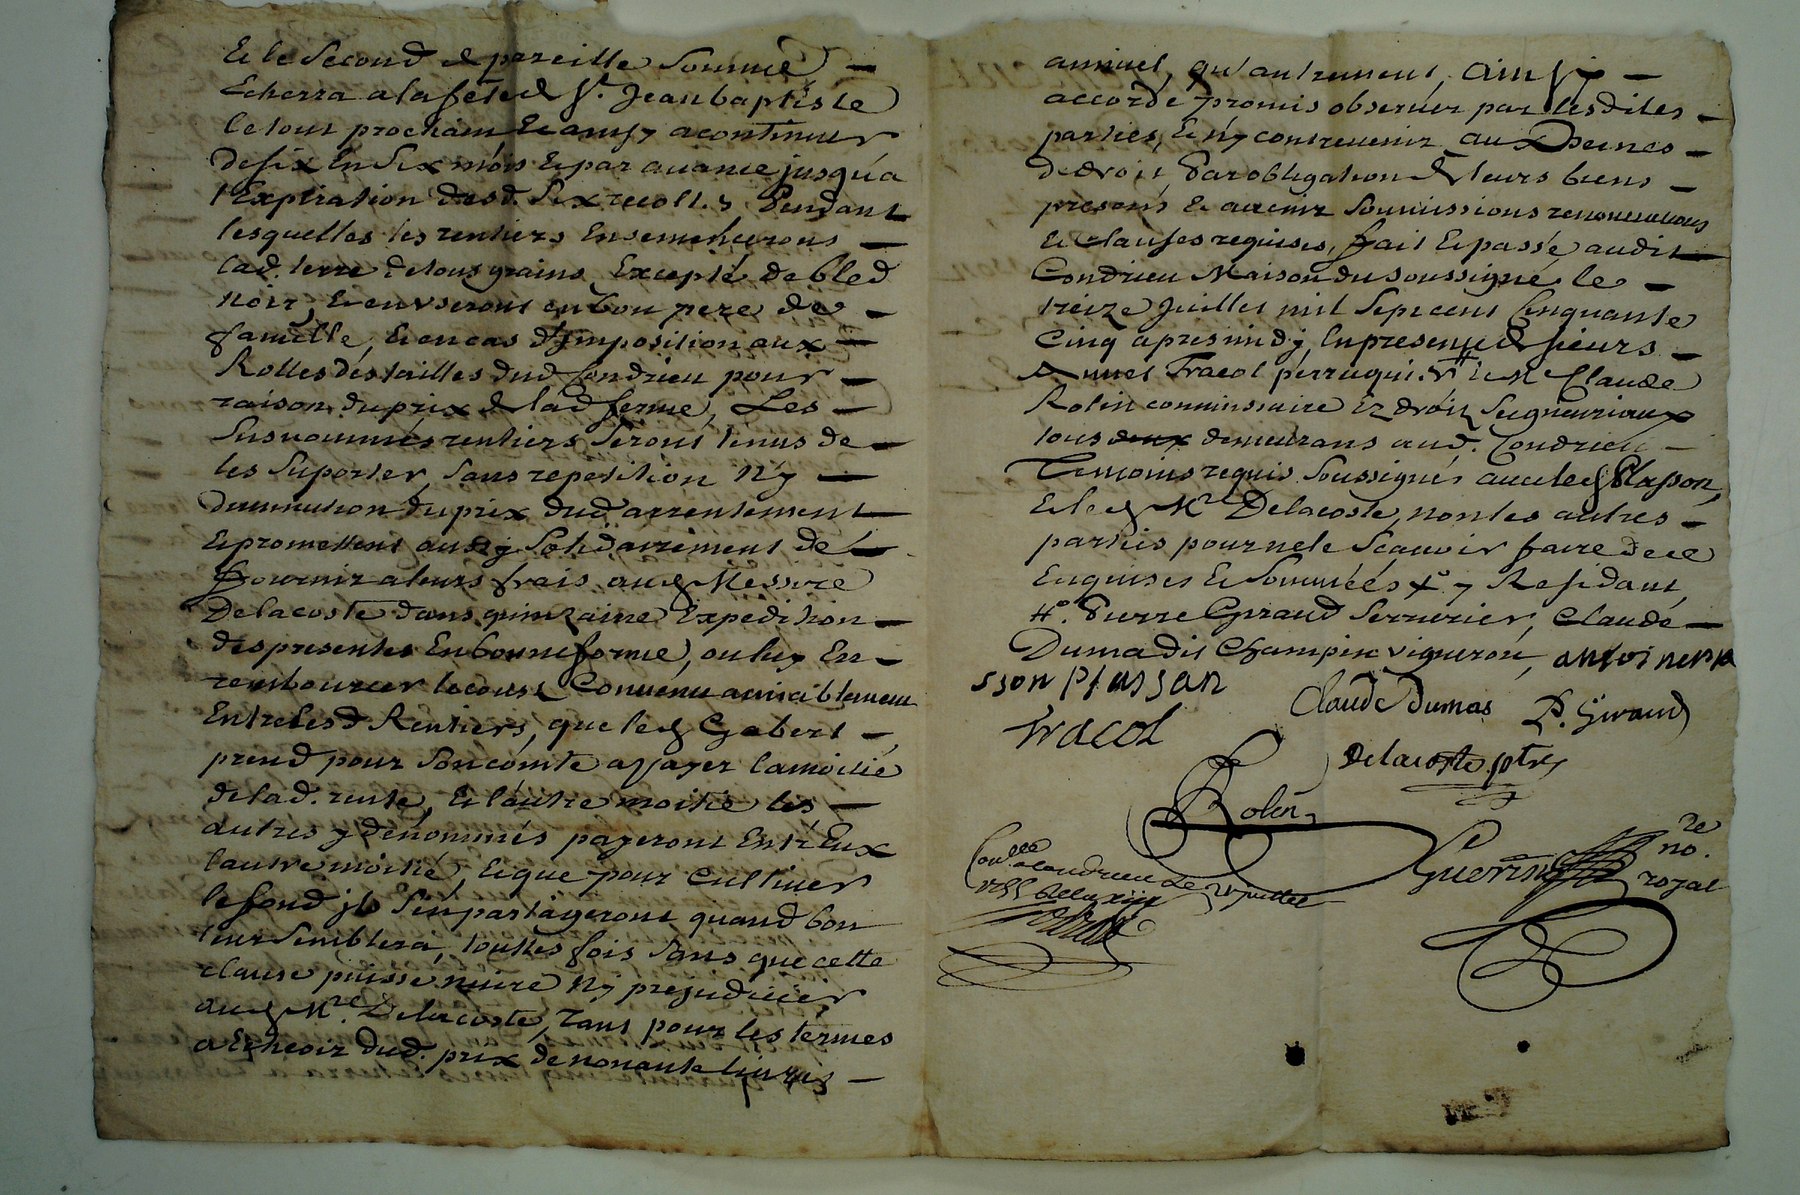 Et le second de pareille somme
Echerra a la fete de St. Jean baptiste
le tout prochain Et ainsy a continuer
de six En six mois Et par avance jusqu'a
l'Expiration desd. six recoltes Pendant
lesquelles les rentiers Ensemenceront
lad. terre de tous grains Excepté de bled
noir, Et en useront en bon pere de
famille, Et en cas d'Imposition aux
Rolles des tailles dud. Condrieu pour
raison du prix de lad ferme, Les
susnommés rentiers seront tenus de
les suporter, sans repetition Ny
diminution du prix dud arrentement
Et promettent aussy solidairement de
fournir a leurs frais aud Messire
Delacoste dans quinzaine Expedition
des presentes En bonne forme, ou luy En
rembourcer le coust, Convenu amiablement
Entre lesd Rentiers, que led Gabert
prend pour son comte a payer la moitié
de lad. rente, Et l'autre moitié les
autres y denommés payeront Entr'Eux
l'autre moitié, Et que pour cultiver
le fond ils s'en partageront quand bon
leur semblera, touttes fois sans que cette
clause puisse nuire Ny prejudicier
aud Mre. Delacoste, Tant pour les termes
a Echeoir dud. prix de nonante livres
annuel, qu'autrement, ainsy
accordé promis observer par lesdites
parties, Et n'y contrevenir aux Peines
de droit Par obligation de leurs biens
presens Et avenir soumissions renonciations
Et clauses requises, fait Et passé audit
Condrieu Maison du soussigné le
treize Juillet mil sept cent Cinquante
Cinq apres midy, En presence de sieurs
Annet Tracol perruquier Et Me Claude
Rolin commissaire Ez droits seigneuriaux
tous deux demeurans aud. Condrieu
Temoins requis soussignés avec led Plasson,
Et led Mre Delacoste, non les autres
parties pour ne le scavoir faire de ce
Enquises Et sommées y Residant,
Pierre Giraud serrurier, Claude
Dumas dit Champin vigneron, antoine pla
sson Plassan
Claude Dumas P. Giraud
Tracol
Delacoste ptre
Rolin
Guerin no.re royal
Con.llé a Condrieu Le juillet
1755